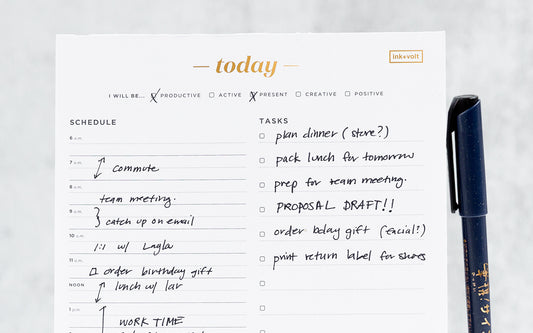 today
ink+volt
I WILL BE... PRODUCTIVE ACTIVE PRESENT CREATIVE POSITIVE
SCHEDULE
6 a.m.
7 a.m.
commute
8 a.m.
team meeting.
9 a.m.
catch up on email
10 a.m.
1:1 w/ Layla
11 a.m.
order birthday gift
NOON
lunch w/
1 p.m.
WORK TIME
TASKS
plan dinner (store?)
pack lunch for tomorrow
prep for team meeting.
PROPOSAL DRAFT!!
order bday gift (facial?)
print return label for shoes